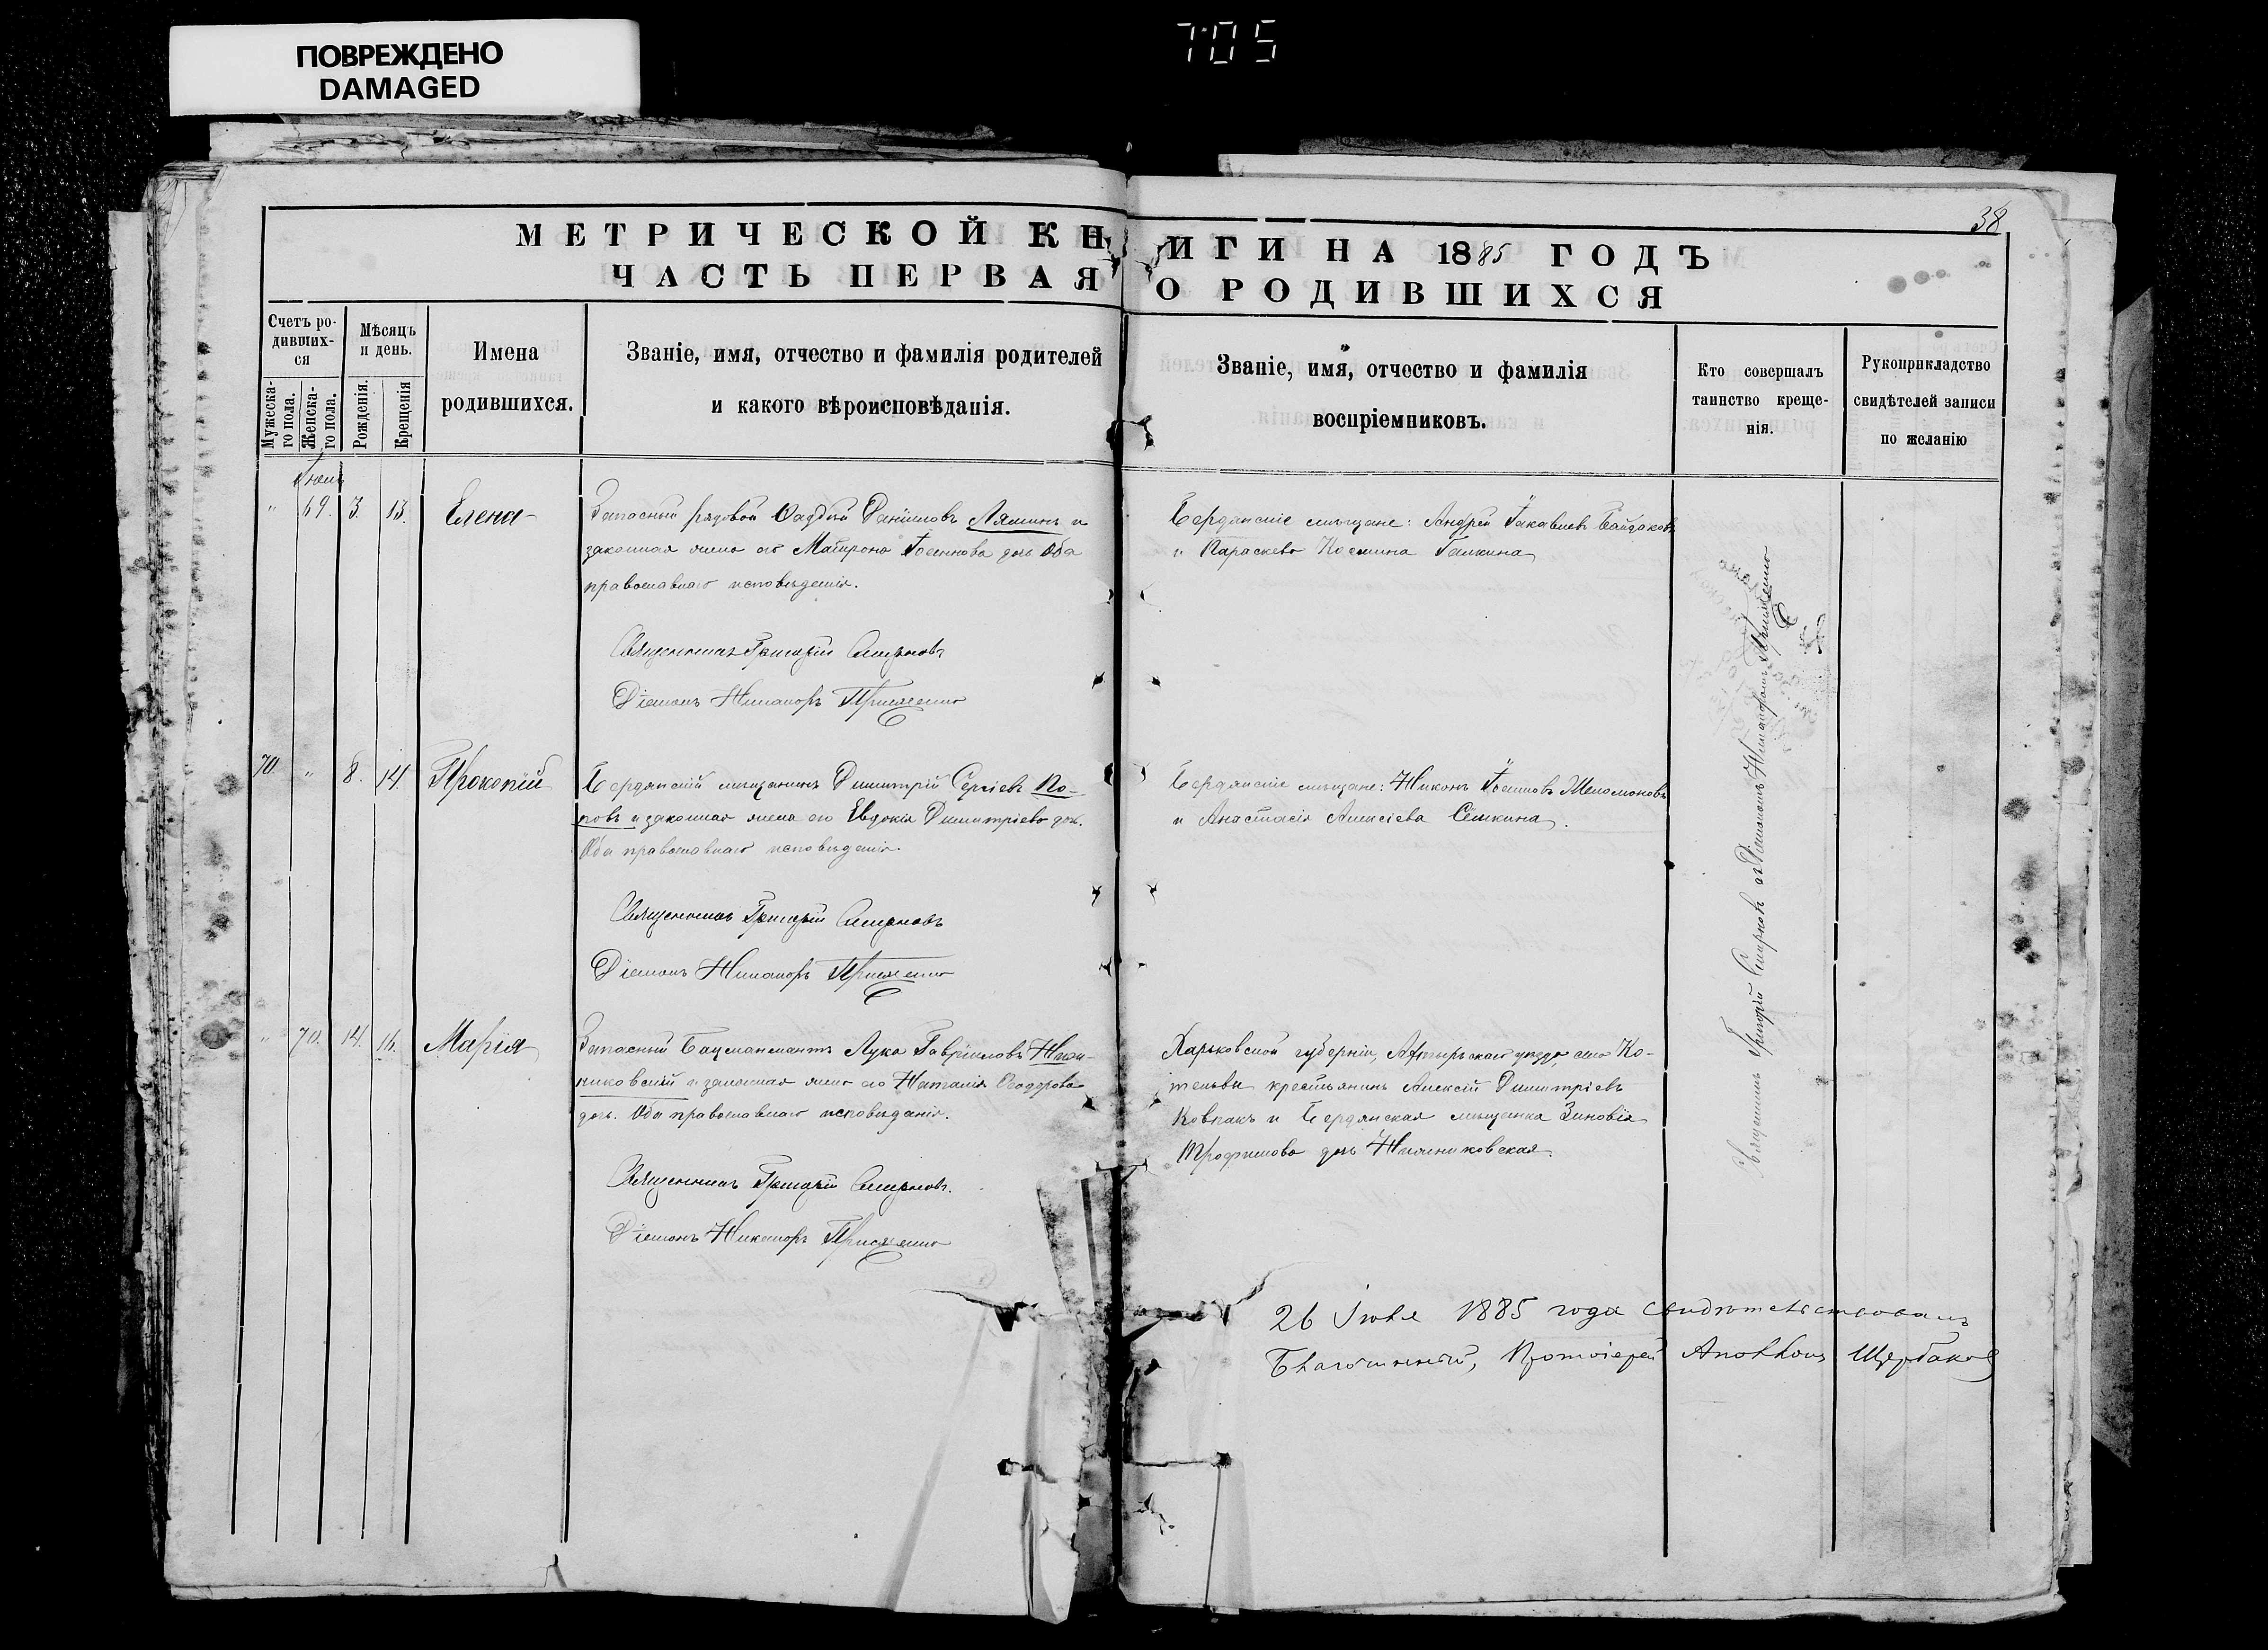 ПОВРЕЖДЕНО
DAMAGED
705
38
МЕТРИЧЕСКОЙ КНИГИ НА 1885 ГОДЪ
ЧАСТЬ ПЕРВАЯ О РОДИВШИХСЯ
Счетъ ро-
дивших-
ся
Мужеска-
го пола.
Женска-
го пола.
Мѣсяцъ
и день.
Рожденія.
Крещенія
Имена
родившихся.
Званіе, имя, отчество и фамилія родителей
и какого вѣроисповѣданія.
Званіе, имя, отчество и фамилія
воспріемниковъ.
Кто совершалъ
таинство креще-
нія.
Рукоприкладство
свидѣтелей записи
по желанію
" 69. 3. 13. Елена
Запасный рядовой Фаддей Даніиловъ Ляминъ и
законная жена его Матрона Іоаннова дочь Оба
православнаго исповѣданія.
Священникъ Григорій Смирновъ
Діаконъ Никаноръ
Бердянскіе мѣщане: Андрей Байдаковъ
и Параскева Космина Галкина
70. " 8. 14. Прокопій
Бердянскій мѣщанинъ Димитрій Сергіевъ По-
повъ и законная жена его Евдокія Димитріева доч.
Оба православнаго исповѣданія.
Священникъ Григорій Смирновъ
Діаконъ Никаноръ
Бердянскіе мѣщане: Никонъ Іоанновъ
и Анастасія Алексіева Сёмкина.
" 70. 14. 16. Марія
Запасный Лука Гавріиловъ
и законная жена его Наталія Ѳеодорова
дочь. Оба православнаго исповѣданія.
Священникъ Григорій Смирновъ.
Діаконъ Никаноръ
Харьковской губерніи, Ахтырскаго уѣзда села Ко-
тельвы крестьянинъ Алексій Димитріевъ
Ковпакъ и Бердянская мѣщанка Зиновія
Трофимова дочь
Священникъ Григорій Смирновъ съ Діакономъ Никаноромъ
26 Іюля 1885 года свидѣтельствовалъ
Благочинный, Протоіерей Аполлонъ Щербаковъ